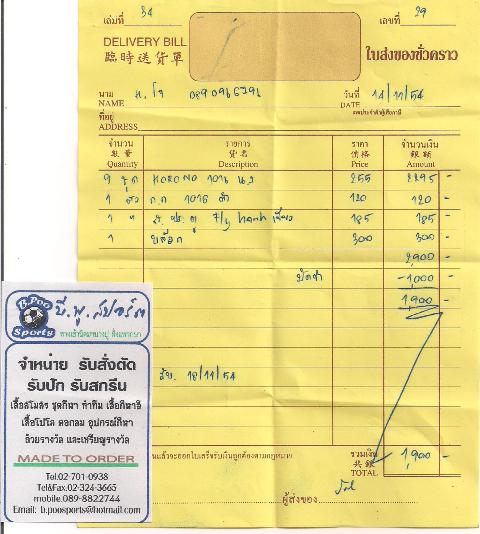 เล่มที่ 34 เลขที่ 29
DELIVERY BILL
臨時送貨單 ใบส่งของชั่วคราว
นาม วันที่ 14/11/54
NAME DATE
ที่อยู่
ADDRESS
จำนวน รายการ ราคา จำนวนเงิน
數量 貨名 價格 銀額
Quantity Description Price Amount
9 ชุด 1016 255 2295 -
1 ตัว 1016 ดำ 120 120 -
1 " 185 185 -
1 บล๊อก 300 300 -
2900 -
มัดจำ -1,000 -
1,900 -
รับ. 18/11/54
รวมเงิน 1,900 -
共銀
TOTAL
ผู้ส่งของ
B.Poo
Sports
บี.พู.สปอร์ต
จำหน่าย รับสั่งตัด
รับปัก รับสกรีน
เสื้อสโมสร ชุดกีฬา ทำทีม เสื้อกีฬาสี
เสื้อโปโล คอกลม อุปกรณ์กีฬา
ถ้วยรางวัล และเหรียญรางวัล
MADE TO ORDER
Tel.02-701-0938
Tel&Fax.02-324-3665
mobile.089-8822744
Email: b.poosports@hotmail.com